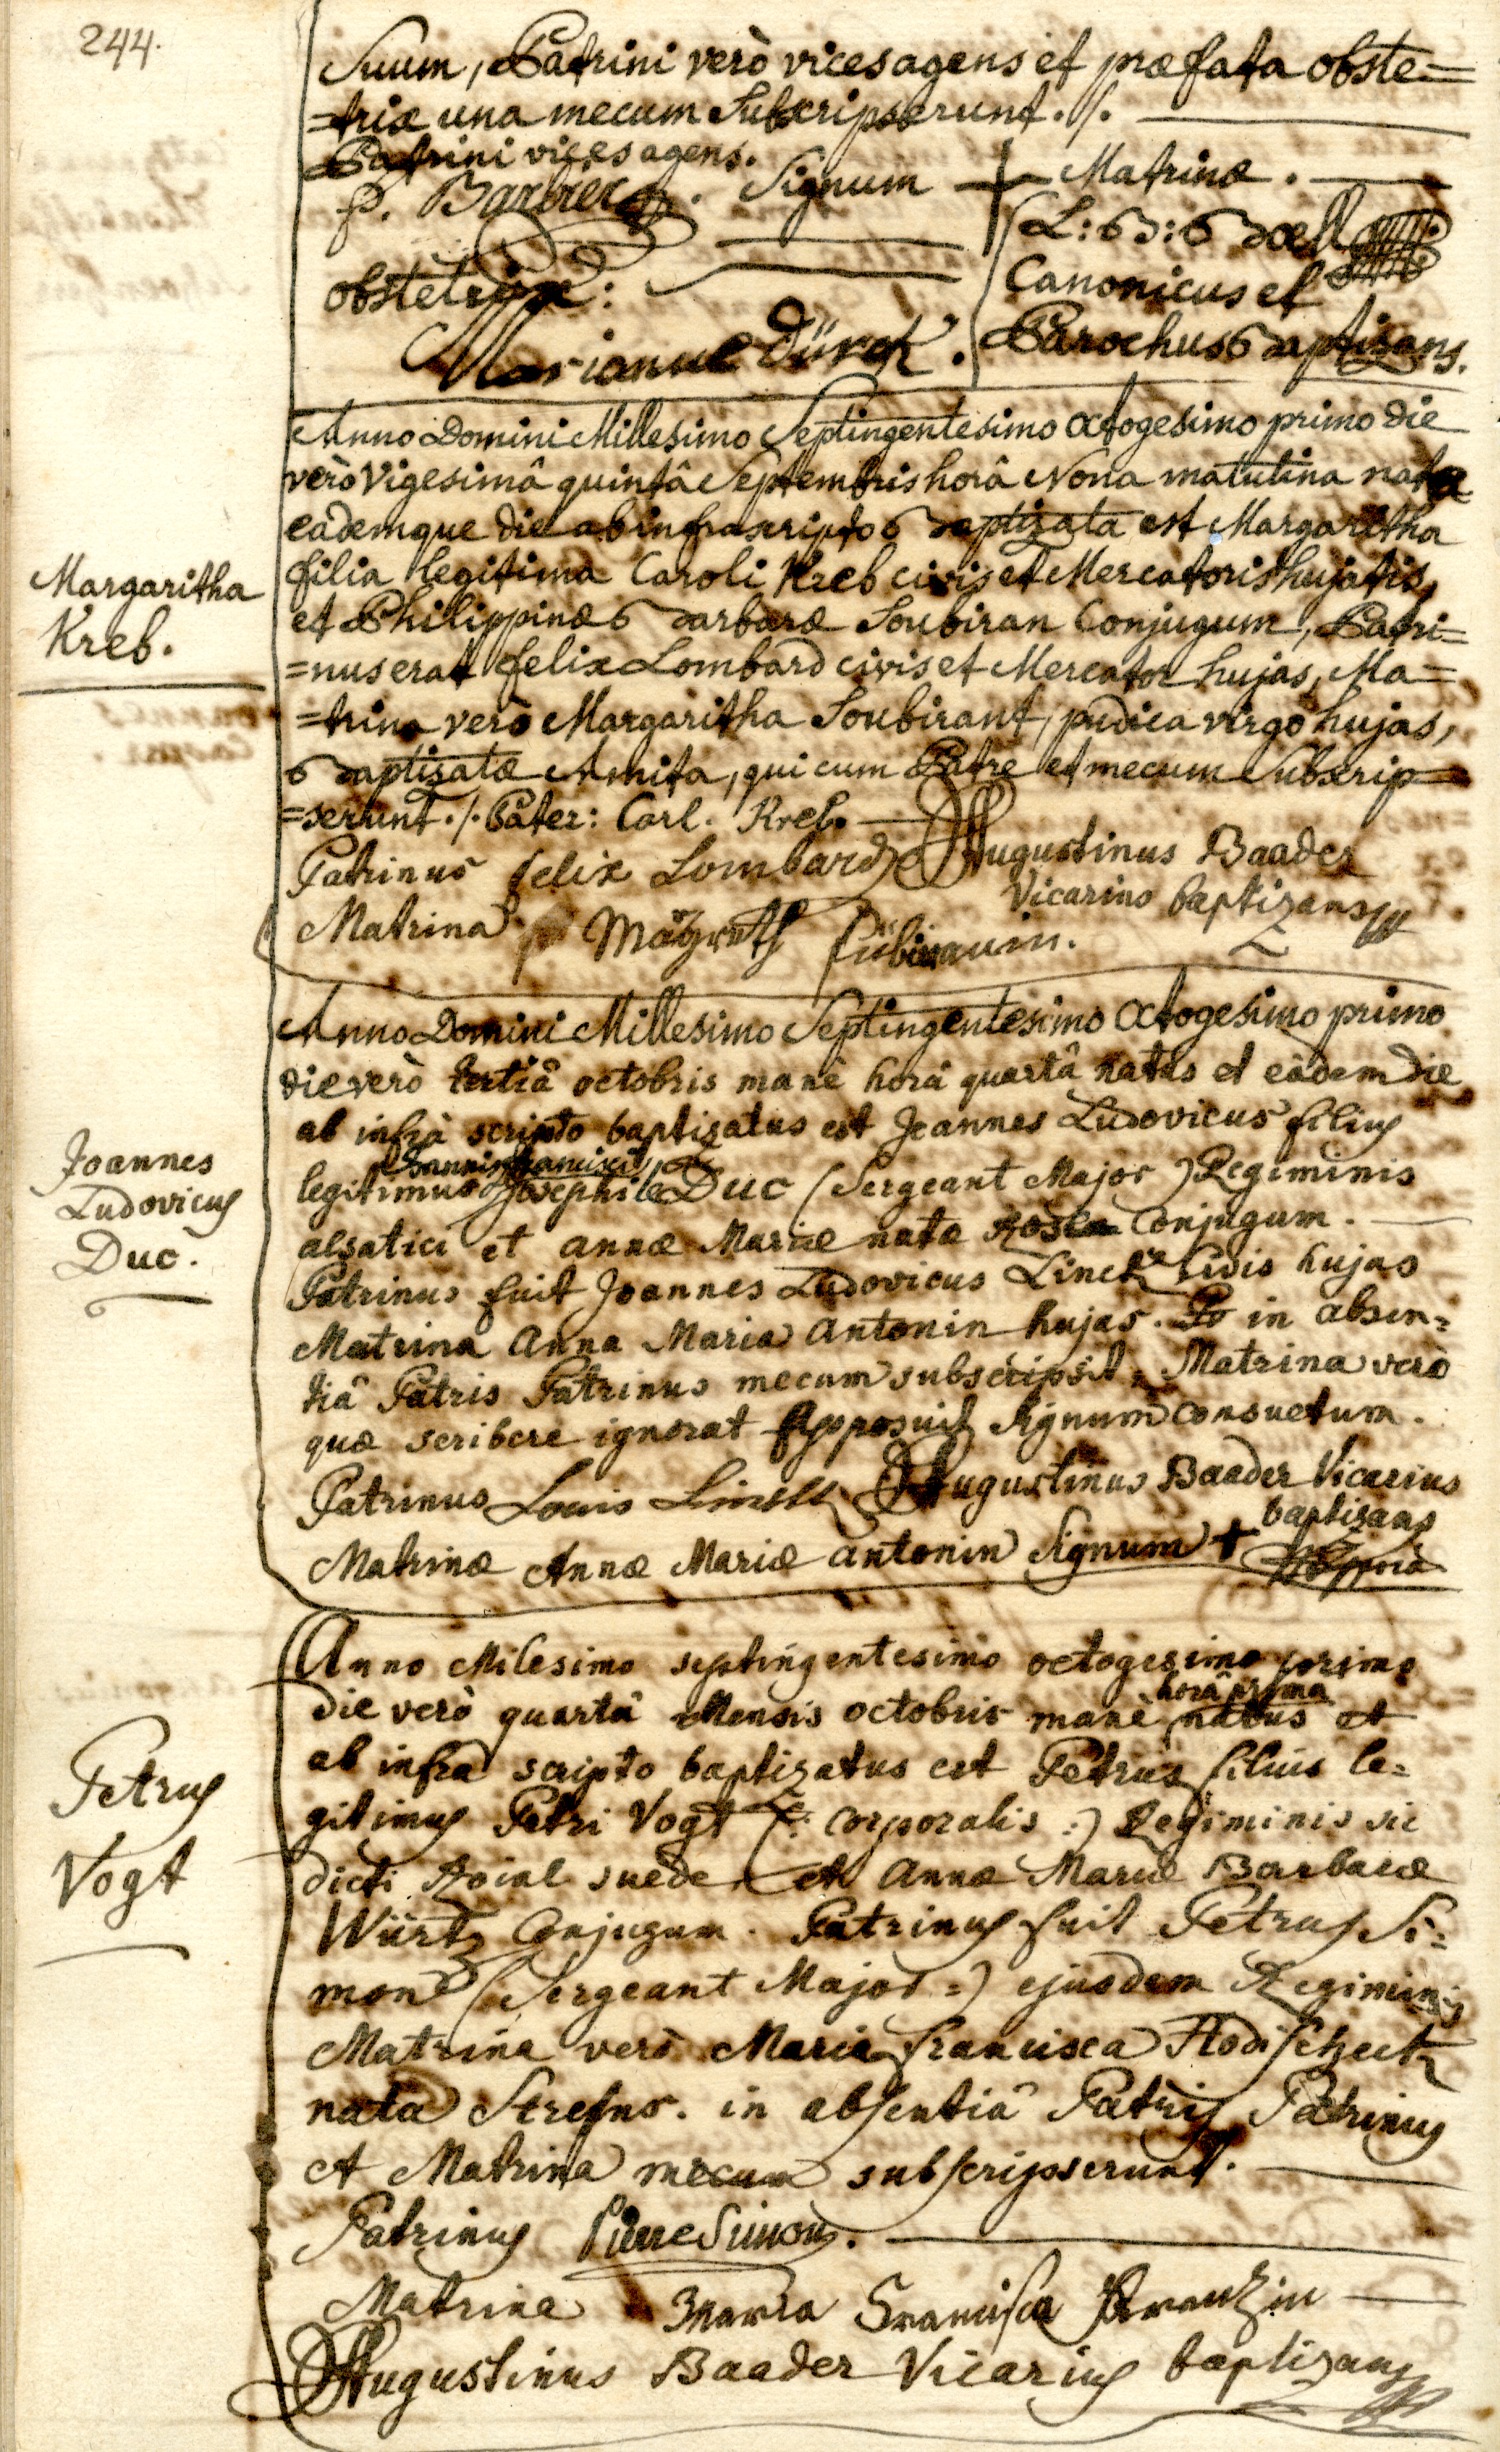 244.
Suum, Patrini verò vices agens et præfata obste=
=trix una mecum Subscripserunt ./.
Patrini vices agens.
Signum + Matrinæ.
Canonicus et
obstetrix:
Parochus Baptizans.
Anno Domini Millesimo Septingentesimo Octogesimo primo die
verò Vigesimâ quintâ Septembris horâ Nona matutina nata
eademque die ab infrascripto Baptizata est Margaritha
filia legitima Caroli Kreb civis et Mercatoris hujatis,
et Philippinæ Barbaræ Soubiran Conjugum, Patri=
=nus erat felix Lombard civis et Mercator hujas, Ma=
=trina verò Margaritha Soubirant, pudica virgo hujas,
Baptizatæ Amita, qui cum Patre et mecum Subscrip=
=serunt ./. Pater: Carl. Kreb.
Margaritha
Kreb.
Patrinus felix Lombard Augustinus Baader
Vicarius baptizans
Matrina
Anno Domini Millesimo Septingentesimo Octogesimo primo
die verò tertiâ octobris manè horâ quartâ natus et eâdem die
ab infrà scripto baptizatus est Joannes Ludovicus filius
Joannis francisci
legitimus Josephi le Duc (Sergeant Major) Regiminis
alsatici et annæ Mariæ nata Conjugum.
Patrinus fuit Joannes Ludovicus Civis hujas
Matrina Anna Maria Antonin hujas. in absen=
tiâ Patris Patrinus mecum subscripsit, Matrina verò
quæ scribere ignorat apposuit signum consuetum.
Joannes
Ludovicus
Duc.
Patrinus Louis Augustinus Baader Vicarius
baptizans
Matrinæ Annæ Mariæ Antonin Signum +
Anno Milesimo septingentesimo octogesimo primo
horâ prima
die verò quartâ Mensis octobris manè natus et
ab infrà scripto baptizatus est Petrus filius le=
gitimus Petri Vogt (: Corporalis :) Regiminis sic
dicti Roial suede, et Annæ Mariæ Barbaræ
Würtz Conjugum. Patrinus fuit Petrus Si=
mon (Sergeant Major =) ejusdem Regiminis
Matrina verò Maria francisca
nata in absentiâ Patris Patrinus
et Matrina mecum subscripserunt.
Petrus
Vogt
Patrinus Pierre Simon.
Matrina Maria
Augustinus Baader Vicarius baptizans